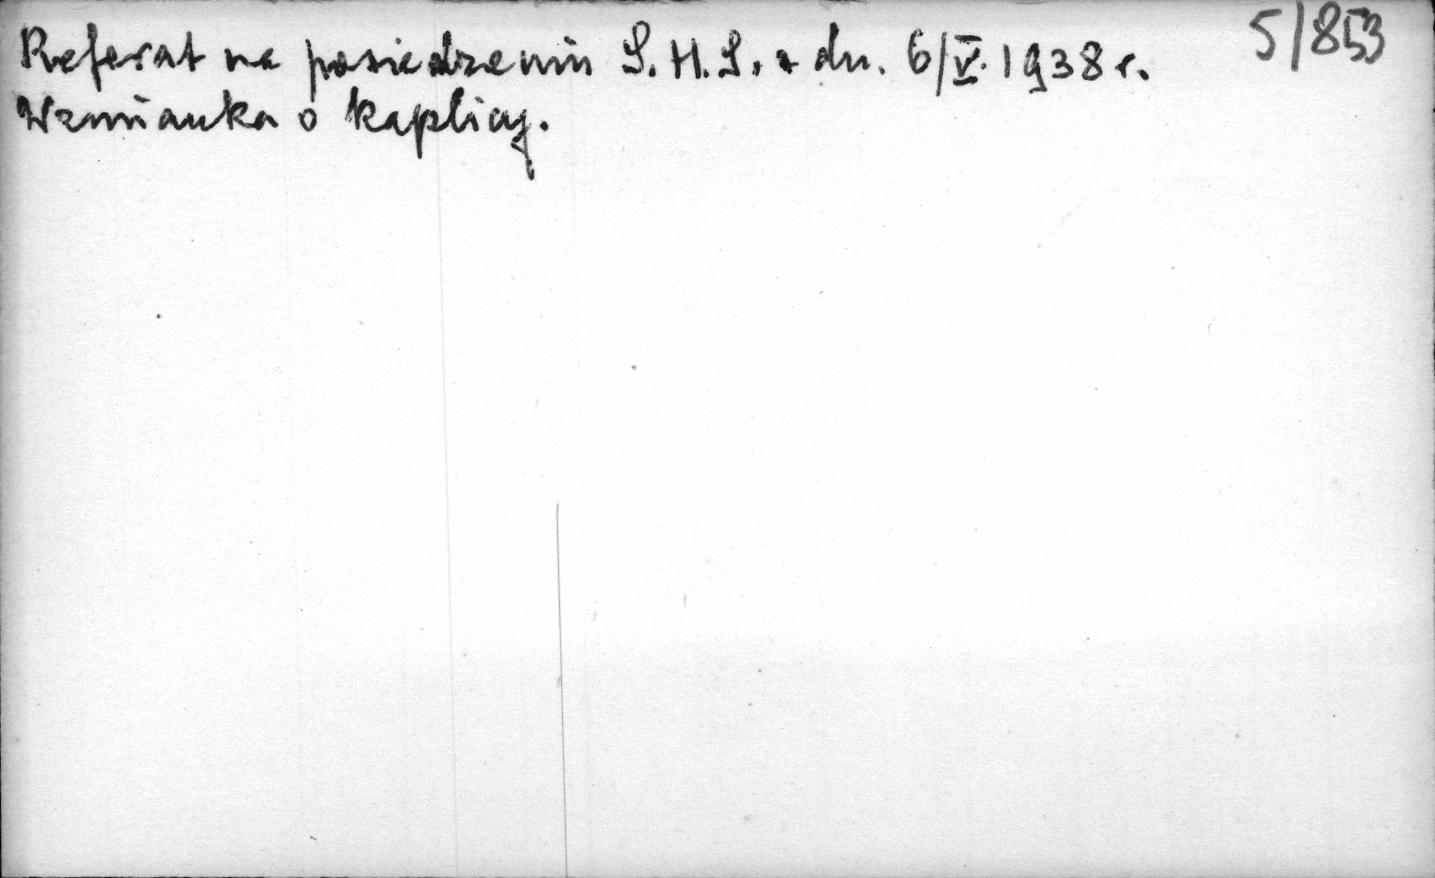 5/853
Referat na posiedzeniu S.H.S. z dn. 6/V. 1938 r.
Wzmianka o kaplicy.